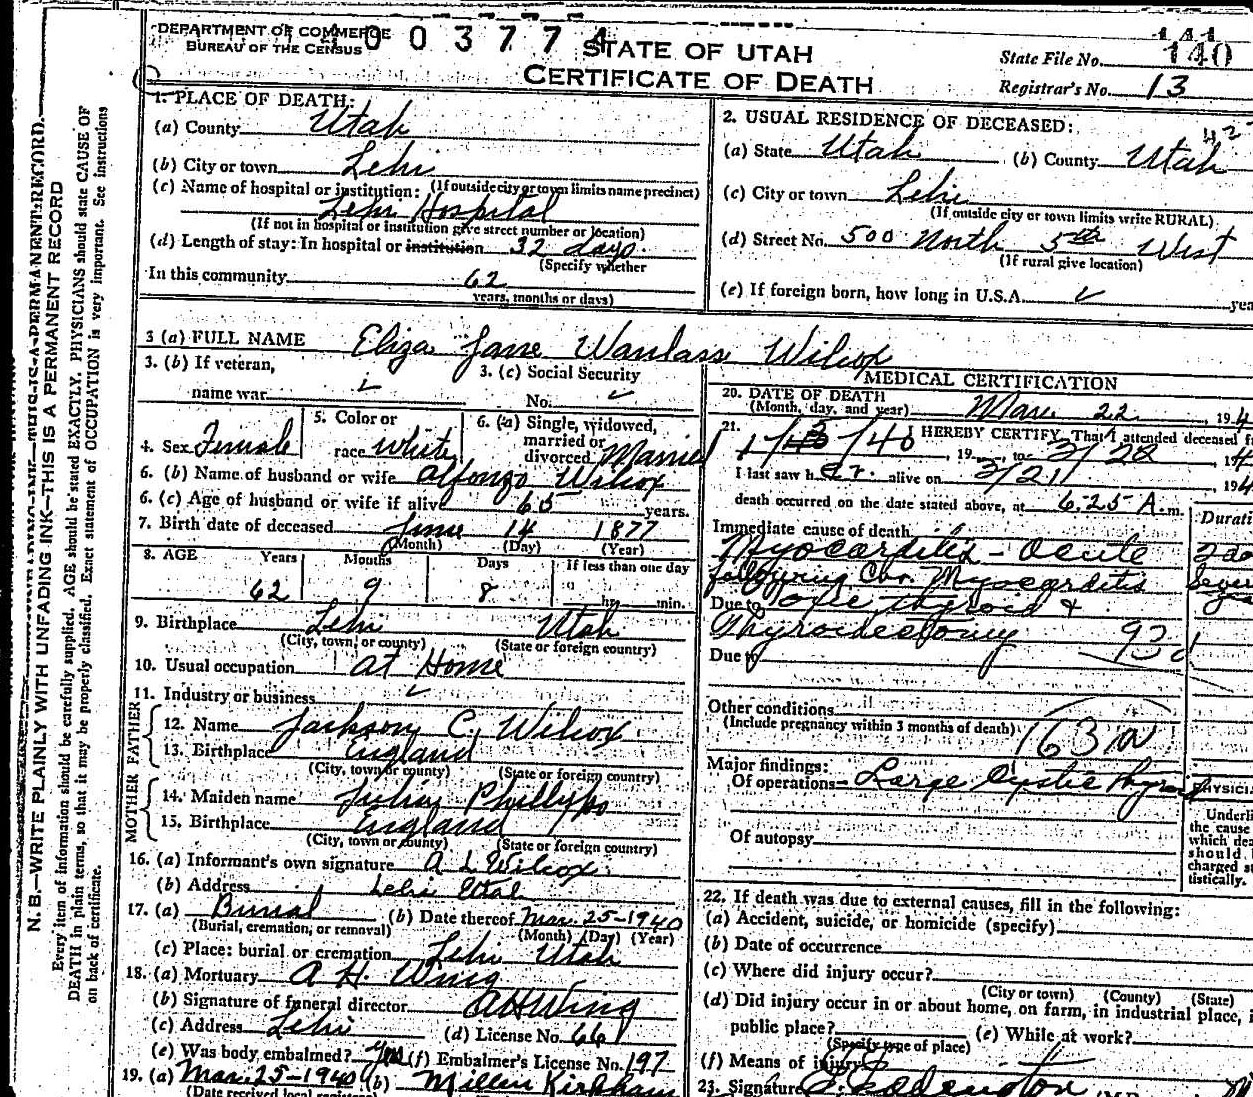 DEPARTMENT OF COMMERCE
BUREAU OF THE CENSUS
STATE OF UTAH
CERTIFICATE OF DEATH
State File No. 140
Registrar's No. 13
N. B.—WRITE PLAINLY WITH UNFADING INK—THIS IS A PERMANENT RECORD
Every item of information should be carefully supplied. AGE should be stated EXACTLY. PHYSICIANS should state CAUSE OF
DEATH in plain terms, so that it may be properly classified. Exact statement of OCCUPATION is very important. See instructions
on back of certificate.
1. PLACE OF DEATH:
(a) County Utah
(b) City or town Lehi
(If outside city or town limits name precinct)
(c) Name of hospital or institution:
Lehi Hospital
(If not in hospital or institution give street number or location)
(d) Length of stay: In hospital or institution 32 days
(Specify whether
In this community 62
years, months or days)
2. USUAL RESIDENCE OF DECEASED:
(a) State Utah (b) County Utah
(c) City or town Lehi
(If outside city or town limits write RURAL)
(d) Street No. 500 North 5th West
(If rural give location)
(e) If foreign born, how long in U.S.A. ✓
3 (a) FULL NAME Eliza Jane Wanlass Wilcox
3. (b) If veteran,
name war ✓
3. (c) Social Security
No. ✓
4. Sex Female
5. Color or
race White
6. (a) Single, widowed,
married or
divorced Married
6. (b) Name of husband or wife Alfonzo Wilcox
6. (c) Age of husband or wife if alive 65 years.
7. Birth date of deceased June 14 1877
(Month) (Day) (Year)
8. AGE Years Months Days If less than one day
62 9 8 hr. min.
9. Birthplace Lehi Utah
(City, town, or county) (State or foreign country)
10. Usual occupation at Home
11. Industry or business ✓
FATHER
12. Name Jackson C. Wilcox
13. Birthplace England
(City, town or county) (State or foreign country)
MOTHER
14. Maiden name Julia Phillips
15. Birthplace England
(City, town or county) (State or foreign country)
16. (a) Informant's own signature A L Wilcox
(b) Address Lehi Utah
17. (a) Burial (b) Date thereof Mar. 25-1940
(Burial, cremation, or removal) (Month) (Day) (Year)
(c) Place: burial or cremation Lehi Utah
18. (a) Mortuary A H. Wing
(b) Signature of funeral director A H Wing
(c) Address Lehi (d) License No. 661
(e) Was body embalmed? Yes (f) Embalmer's License No. 197
19. (a) Mar. 25-1940 (b) Millen Kirkham
(Date received local
MEDICAL CERTIFICATION
20. DATE OF DEATH
(Month, day, and year) Mar. 22 194
21. I HEREBY CERTIFY, That I attended deceased
/40, 19 , to 3/20
I last saw her alive on 3/21, 194
death occurred on the date stated above, at 6:25 A.m.
Immediate cause of death
Myocarditis - acute
following Chr. Myocarditis
Due to Toxic thyroid &
Thyroidectomy 93d
Due to
Other conditions
(Include pregnancy within 3 months of death)
63a
Major findings:
Of operations - Large Cystic Thyroid
Of autopsy
22. If death was due to external causes, fill in the following:
(a) Accident, suicide, or homicide (specify)
(b) Date of occurrence
(c) Where did injury occur?
(City or town) (County) (State)
(d) Did injury occur in or about home, on farm, in industrial place,
public place? (e) While at work?
(Specify type of place)
(f) Means of injury
23. Signature